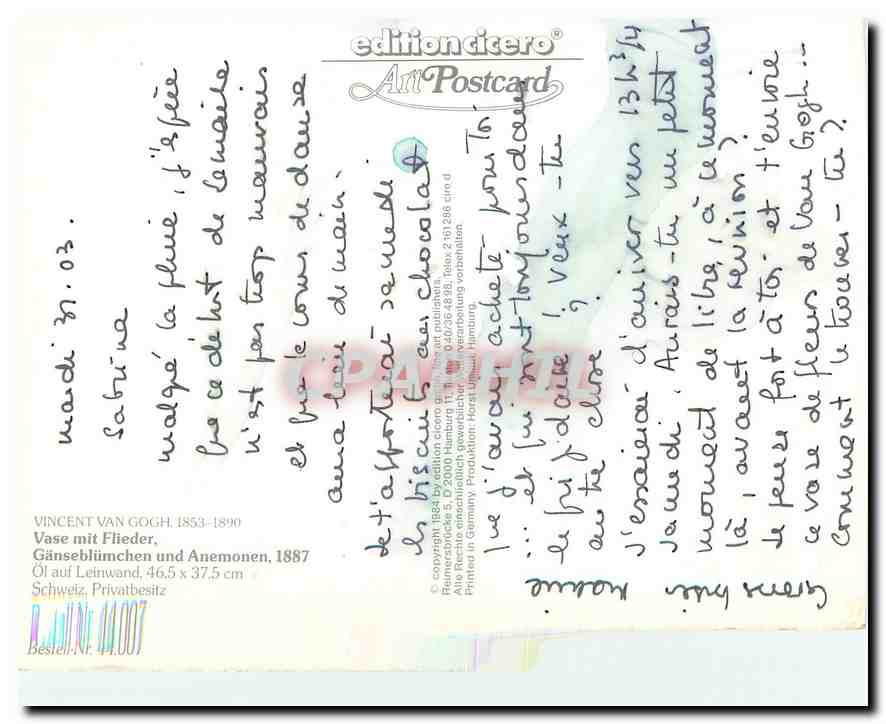 edition cicero®
Art Postcard
mardi 31.03.
Sabrina
malgré la pluie, j'espère
que ce début de semaine
n'est pas trop mauvais
et que le cours de danse
aura lieu demain.
Je t'apporterai samedi
les biscuits au chocolat
que j'avais acheté pour Toi
... et qui sont toujours dans
le frigidaire ! veux-tu
autre chose ?
J'essaierai d'arriver vers 13h 3/4
samedi. Aurais-tu un petit
moment de libre, à ce moment
là, avant la réunion ?
Je pense fort à Toi et t'envoie
ce vase de fleurs de Van Gogh...
comment le trouves-tu ?
VINCENT VAN GOGH, 1853–1890
Vase mit Flieder,
Gänseblümchen und Anemonen, 1887
Öl auf Leinwand, 46.5 x 37.5 cm
Schweiz, Privatbesitz
Bestell-Nr. 44.007
© copyright 1984 by edition cicero gmbh, fine art publishers.
Reimersbrücke 5, D 2000 Hamburg 11, 040/36 48 98, Telex 2 161 286 cire d
Alle Rechte einschließlich gewerblicher verarbeitung vorbehalten.
Printed in Germany. Produktion: Horst Hamburg.
CPAPHIL